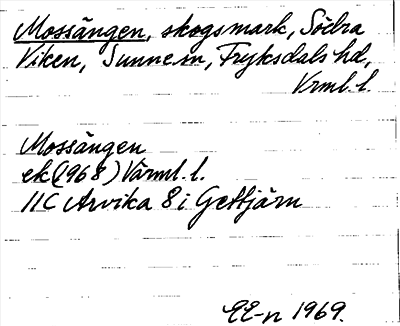 Mossängen, skogsmark, Södra
Viken, Sunne sn, Fryksdals hd,
Vrml. l.
Mossängen
ek (1968) Värml. l.
11C Arvika 8 i Gettjärn
EE-n 1969.